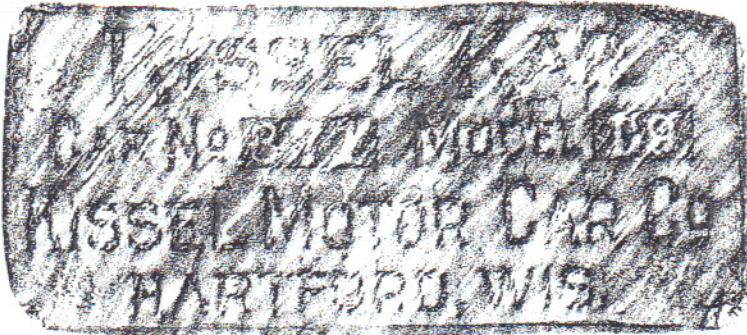 KISSEL KAR
CAR NO MODEL D9
KISSEL MOTOR CAR CO
HARTFORD, WIS.